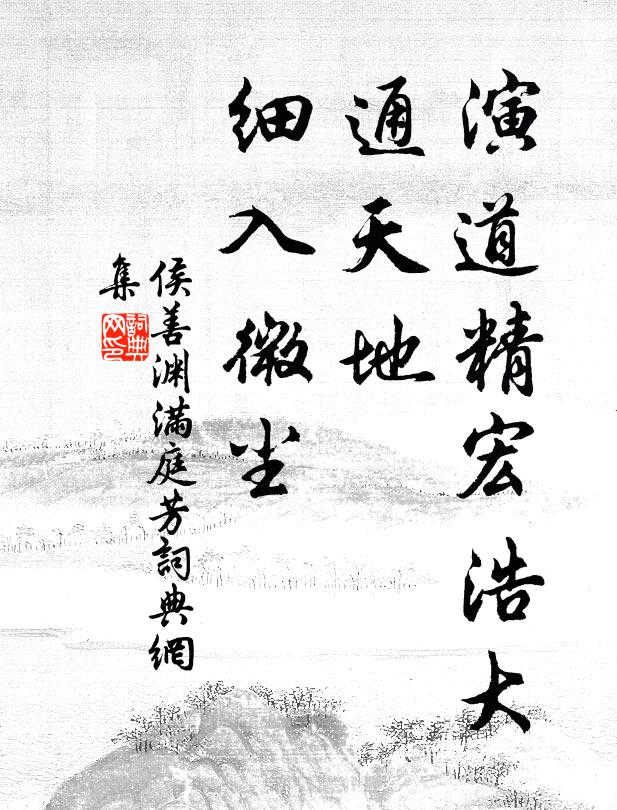 演道精宏浩大
通天地
细入微尘
侯善渊满庭芳詞典網
集
詞典
网印